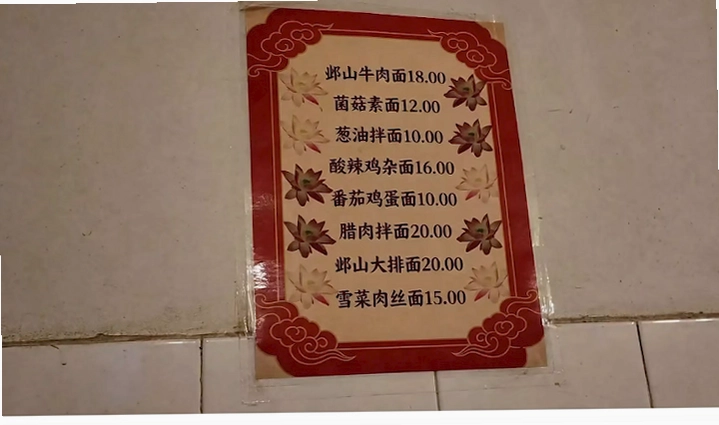 邺山牛肉面18.00
菌菇素面12.00
葱油拌面10.00
酸辣鸡杂面16.00
番茄鸡蛋面10.00
腊肉拌面20.00
邺山大排面20.00
雪菜肉丝面15.00